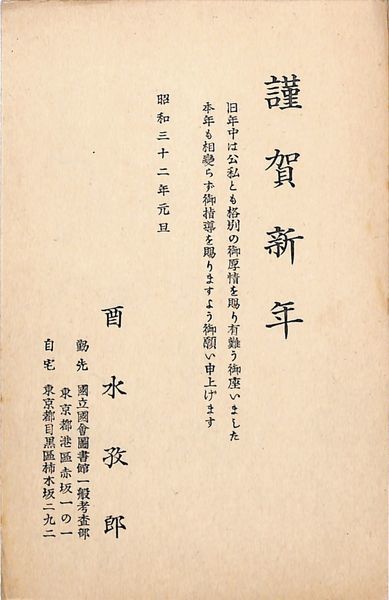 謹賀新年
旧年中は公私とも格別の御厚情を賜り有難う御座いました
本年も相變らず御指導を賜りますよう御願い申上げます
昭和三十二年元旦
酉水孜郎
勤先 國立國會圖書館一般考査部
東京都港區赤坂一の一
自宅 東京都目黒區柿木坂二九二